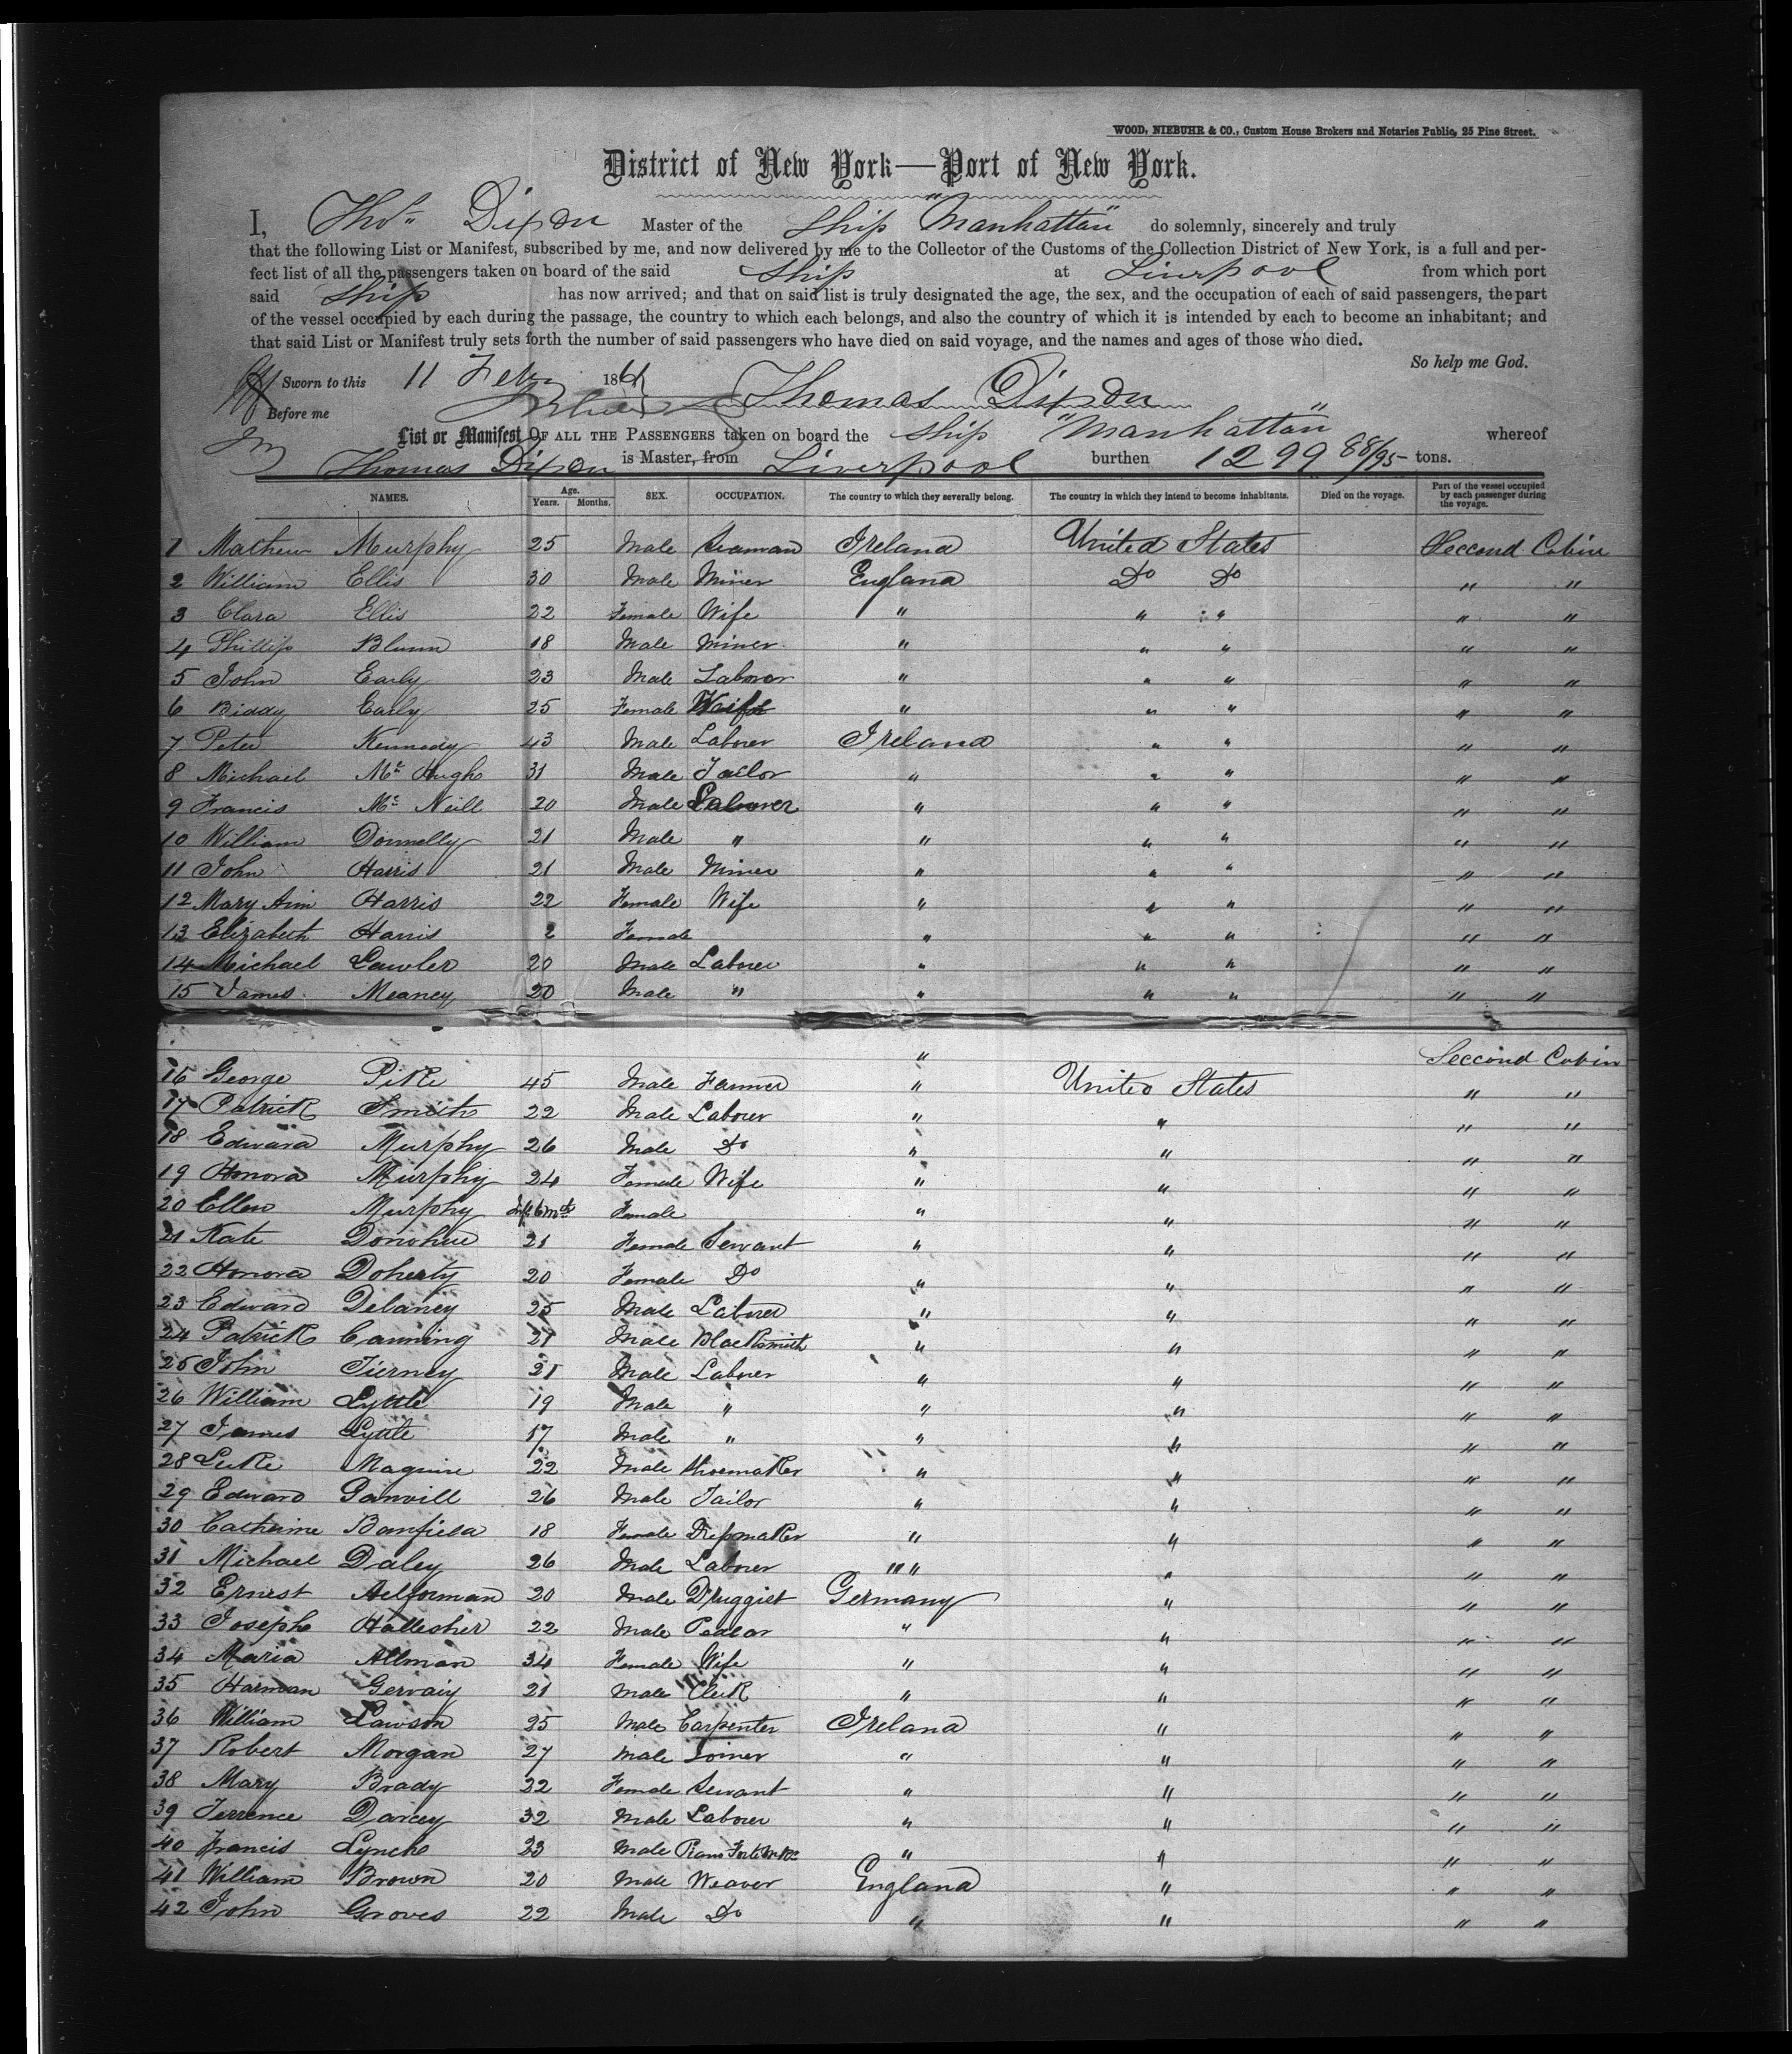 WOOD, NIEBUHR & CO., Custom House Brokers and Notaries Public, 25 Pine Street.
District of New York—Port of New York.
I, Thos Dixon Master of the Ship "Manhattan" do solemnly, sincerely and truly
that the following List or Manifest, subscribed by me, and now delivered by me to the Collector of the Customs of the Collection District of New York, is a full and per-
fect list of all the passengers taken on board of the said Ship at Liverpool from which port
said Ship has now arrived; and that on said list is truly designated the age, the sex, and the occupation of each of said passengers, the part
of the vessel occupied by each during the passage, the country to which each belongs, and also the country of which it is intended by each to become an inhabitant; and
that said List or Manifest truly sets forth the number of said passengers who have died on said voyage, and the names and ages of those who died.
So help me God.
Sworn to this 11 Feby 186 Thomas Dixon
Before me
List or Manifest OF ALL THE PASSENGERS taken on board the Ship "Manhattan" whereof
Thomas Dixon is Master, from Liverpool burthen 1299 88/95 tons.
NAMES. Age. Years. Months. SEX. OCCUPATION. The country to which they severally belong. The country in which they intend to become inhabitants. Died on the voyage. Part of the vessel occupied by each passenger during the voyage.
1 Mathew Murphy 25 Male Seaman Ireland United States Seccond Cabin
2 William Ellis 30 Male Miner England Do Do " "
3 Clara Ellis 22 Female Wife " " " " "
4 Phillip Blunn 18 Male Miner " " " " "
5 John Early 23 Male Laborer " " " " "
6 Biddy Early 25 Female Waife " " " " "
7 Peter Kennedy 43 Male Laborer Ireland " " " "
8 Michael Mc Hugh 31 Male Tailor " " " " "
9 Francis Mc Neill 20 Male Laborer " " " " "
10 William Donnelly 21 Male " " " " " "
11 John Harris 21 Male Miner " " " " "
12 Mary Ann Harris 22 Female Wife " " " " "
13 Elizabeth Harris 2 Female " " " " "
14 Michael Lawler 20 Male Laborer " " " " "
15 James Meaney 20 Male " " " " " "
" Seccond Cabin
16 George Pike 45 Male Farmer " United States " "
17 Patrick Smith 22 Male Laborer " " " "
18 Edward Murphy 26 Male Do " " " "
19 Honora Murphy 24 Female Wife " " " "
20 Ellen Murphy Inft 6 mth Female " " " "
21 Kate Donohue 21 Female Servant " " " "
22 Honora Doherty 20 Female Do " " " "
23 Edward Delaney 25 Male Laborer " " " "
24 Patrick Canning 21 Male Blacksmith " " " "
25 John Tierney 21 Male Laborer " " " "
26 William Lyttle 19 Male " " " " "
27 James Lyttle 17 Male " " " " "
28 Luke Maguire 22 Male Shoemaker " " " "
29 Edward Ganvill 26 Male Tailor " " " "
30 Catherine Banfield 18 Female Dressmaker " " " "
31 Michael Daley 26 Male Laborer " " " " "
32 Ernest 20 Male Druggist Germany " " "
33 Joseph Hallesher 22 Male Pedlar " " " "
34 Maria Allman 34 Female Wife " " " "
35 Harman Gervaiy 21 Male Clerk " " " "
36 William Lawson 25 Male Carpenter Ireland " " "
37 Robert Morgan 27 Male Joiner " " " "
38 Mary Brady 22 Female Servant " " " "
39 Terrence Darcey 32 Male Laborer " " " "
40 Francis Lynch 23 Male Piano Forte " " " "
41 William Brown 20 Male Weaver England " " "
42 John Groves 22 Male Do " " " "